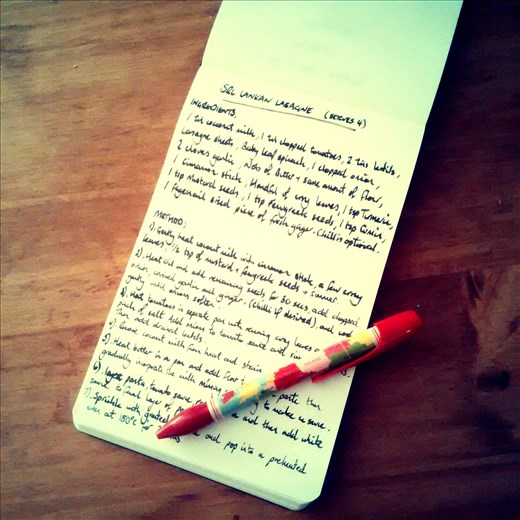 SRI LANKAN LASAGNE (SERVES 4)
INGREDIENTS;
1 tin coconut milk, 1 tin chopped tomatoes, 2 tins lentils,
Lasagne sheets, Baby leaf spinach, 1 chopped onion,
2 cloves garlic, Nob of Butter + same amount of flour,
1 Cinnamon stick, Handful of curry leaves, 1 tsp Tumeric,
1 tsp Mustard seeds, 1 tsp Fenugreek seeds, 1 tsp Cumin,
1 fingernail sized piece of fresh ginger. Chilli is optional.
METHOD;
1). Gently heat coconut milk with cinnamon stick, a few curry
leaves, ½ tsp of mustard + fenugreek seeds + simmer
2). Heat oil and add remaining seeds for 30 secs, add chopped
onion, garlic and ginger. (chilli if desired), and cook
gently until onions soften
3). Heat tomatoes in separate pan with remaining curry leaves
Pinch of salt add onions to tomato sauce and
then add drained lentils.
4). Remove coconut milk from heat and strain
5). Heat butter in a pan and add flour paste then
gradually incorporate the milk to make a sauce.
6). Layer pasta, tomato sauce and then add white
sauce to final layer of
7). Sprinkle with grated and pop into a preheated
oven at 180°c for